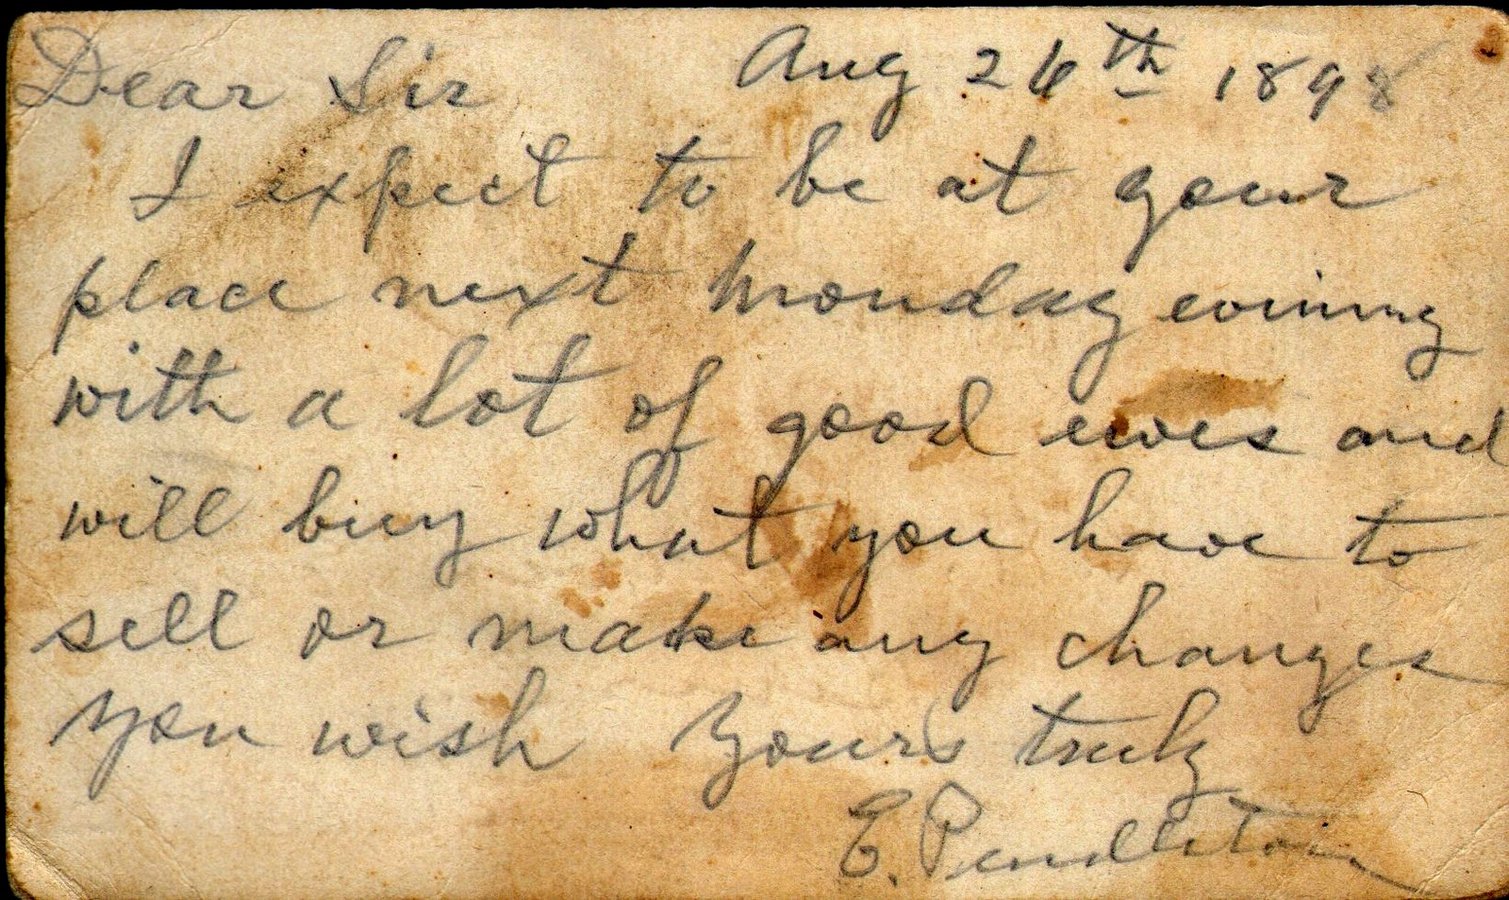 Dear Sir Aug 26th 1898
I expect to be at your
place next Monday evening
with a lot of good ewes and
will buy what you have to
sell or make any changes
you wish Yours truly
E. Pendleton